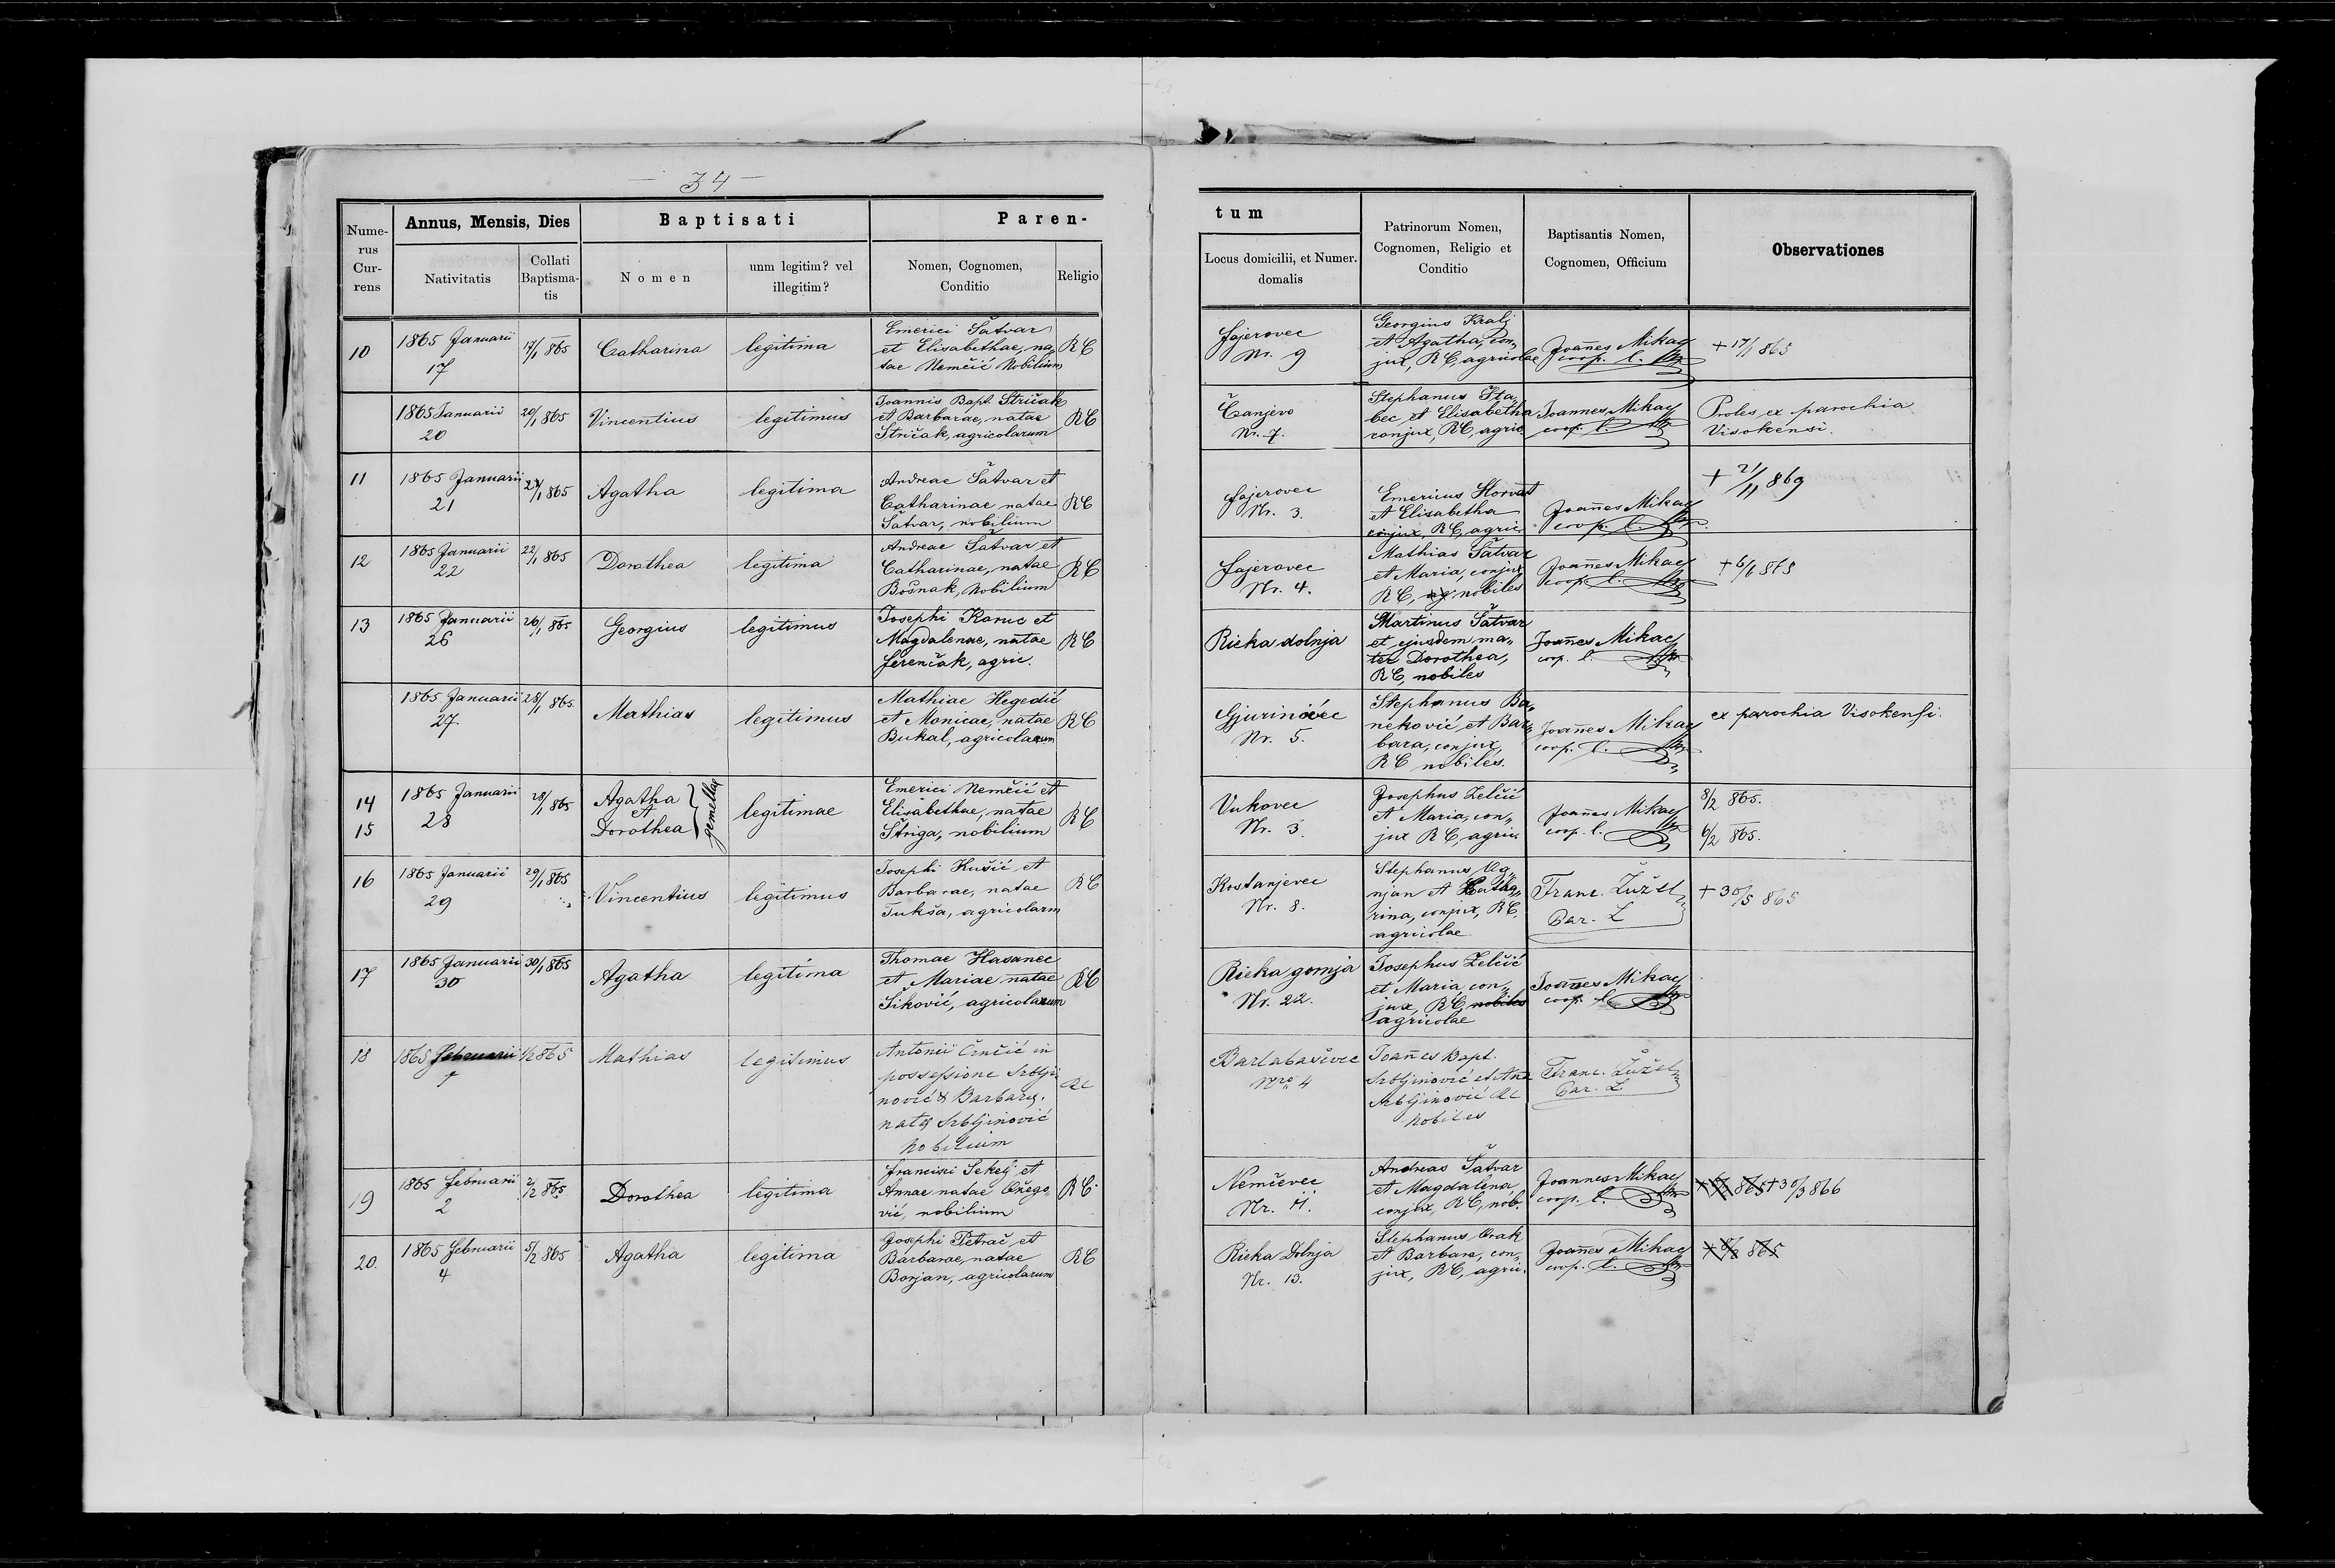 — 34 —
Nume-
rus
Cur-
rens
Annus, Mensis, Dies
Nativitatis
Collati
Baptisma-
tis
Baptisati
Nomen
unm legitim? vel
illegitim?
Paren-
Nomen, Cognomen,
Conditio
Religio
tum
Locus domicilii, et Numer.
domalis
Patrinorum Nomen,
Cognomen, Religio et
Conditio
Baptisantis Nomen,
Cognomen, Officium
Observationes
10
1865 Januarii
17
17/1 865
Catharina
legitima
Emerici Šatvar
et Elisabethae, na„
tae Nemčić Nobilium
RC
Fajerovec
Nr. 9
Georgius Kralj
et Agatha, con„
jux, RC, agricolae
Joañes Mikac
coop. l.
+ 17/1 865
1865 Januarii
20
20/1 865
Vincentius
legitimus
Joannis Bapt. Stričak
et Barbarae, natae
Stričak, agricolarum
RC
Čanjevo
Nr. 7.
Stephanus Šta„
bec, et Elisabetha
conjux, RC, agric.
Joannes Mikac
coop. l.
Proles ex parochia
Visokensi.
11
1865 Januarii
21
865
Agatha
legitima
Andreae Šatvar et
Catharinae natae
Šatvar, nobilium
RC
Fajerovec
Nr. 3.
Emericus Horvat
et Elisabetha
conjux, RC, agric.
Joañes Mikac
coop. l.
+ 21/11 869
12
1865 Januarii
22
22/1 865
Dorothea
legitima
Andreae Šatvar, et
Catharinae, natae
Bošnak, Nobilium
RC
Fajerovec
Nr. 4.
Mathias Šatvar
et Maria, conjux
RC, nobiles
Joañes Mikac
coop. l.
+ 865
13
1865 Januarii
26
26/1 865
Georgius
legitimus
Josephi Kanic et
Magdalenae, natae
Ferenčak, agric.
RC
Rieka dolnja
Martinus Šatvar
et ejusdem ma„
ter Dorothea,
RC, nobiles
Joañes Mikac
coop. l.
1865 Januarii
27.
28/1 865.
Mathias
legitimus
Mathiae Hegedić
et Monicae, natae
Bukal, agricolarum
RC
Gjurinovec
Nr. 5.
Stephanus Ba„
neković, et Bar„
bara, conjux,
RC nobiles.
Joañes Mikac
coop. l.
ex parochia Visokensi.
14
15
1865 Januarii
28
28/1 865
Agatha
et
Dorothea
gemellae
legitimae
Emerici Nemčić et
Elisabethae, natae
Štriga, nobilium
RC
Vukovec
Nr. 3.
Josephus Zelčić
et Maria, con„
jux RC, agric.
Joañes Mikac
coop. l.
8/2 865.
6/2 865.
16
1865 Januarii
29
29/1 865
Vincentius
legitimus
Josephi Kušić et
Barbarae, natae
Tukša, agricolarm
RC
Kostanjevec
Nr. 8.
Stephanus Og„
njan et Catha„
rina, conjux, RC,
agricolae
Franc. Žužel
Par. L
+ 30/5 865
17
1865 Januarii
30
30/1 865
Agatha
legitima
Thomae Hasanec
et Mariae natae
Siković, agricolarum
RC
Rieka gornja
Nr. 22.
Josephus Zelčić
et Maria, con„
jux, RC, nobiles
agricolae
Joañes Mikac
coop. l.
18
1865 Februarii
1
1/2 865
Mathias
legitimus
Antonii Črnčić in
possessione Srblji
nović & Barbarae,
natae Srbljinović
Nobilium
RC
Barlabaševec
Nro 4
Joañes Bapt.
Srbljinović et Ana
Srbljinović RC
Nobiles
Franc. Žužel
Par. L
19
1865 Februarii
2
2/2 865
Dorothea
legitima
Francisci Sekelj et
Annae natae Ožego„
vić, nobilium
RC
Nemčevec
Nr. 11.
Andreas Šatvar
et Magdalena
conjux, RC, nob.
Joannes Mikac
coop. l.
865 + 30/3 866
20.
1865 Februarii
4
5/2 865
Agatha
legitima
Josephi Petrač et
Barbarae, natae
Borjan, agricolarum
RC
Rieka Dolnja
Nr. 13.
Stephanus Orak
et Barbara, con„
jux, RC, agric.
Joañes Mikac
coop. l.
865